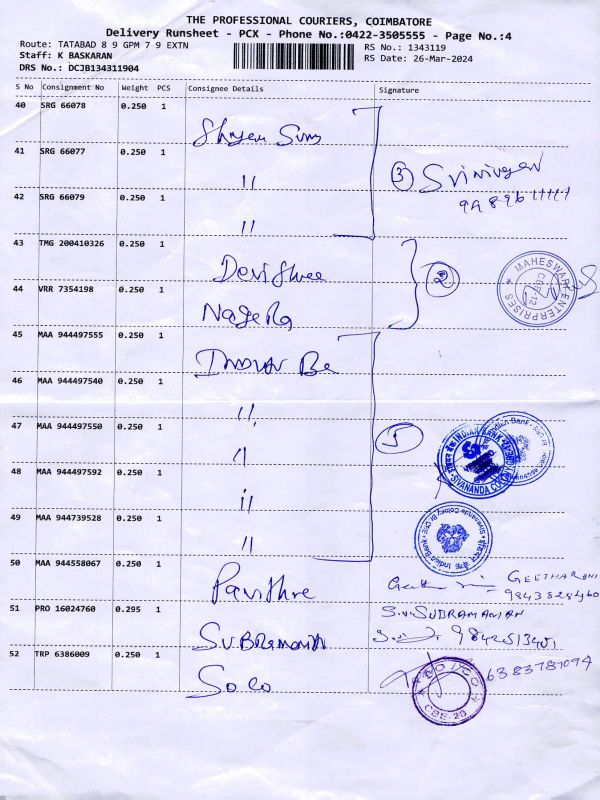 THE PROFESSIONAL COURIERS, COIMBATORE
Delivery Runsheet - PCX - Phone No.:0422-3505555 - Page No.:4
Route: TATABAD 8 9 GPM 7 9 EXTN
RS No.: 1343119
Staff: K BASKARAN
RS Date: 26-Mar-2024
DRS No.: DCJB134311904
S No Consignment No Weight PCS Consignee Details Signature
40 SRG 66078 0.250 1
41 SRG 66077 0.250 1 "
3
42 SRG 66079 0.250 1 "
43 TMG 200410326 0.250 1 Devi Shree
2
MAHESWARI ENTERPRISES
CBE-12
44 VRR 7354198 0.250 1
45 MAA 944497555 0.250 1
46 MAA 944497540 0.250 1 "
47 MAA 944497550 0.250 1 "
5
INDIAN BANK
SIVANANDA COLONY
Indian Bank
48 MAA 944497592 0.250 1 "
49 MAA 944739528 0.250 1 "
Indian Bank
Sivananda Colony Br. CBE
50 MAA 944558067 0.250 1 Pavithre
GEETHARANI
9843828460
51 PRO 16024760 0.295 1 Subramanian
S.V. SUBRAMANIAN
52 TRP 6386009 0.250 1 Solo
6383787094
CBE-20